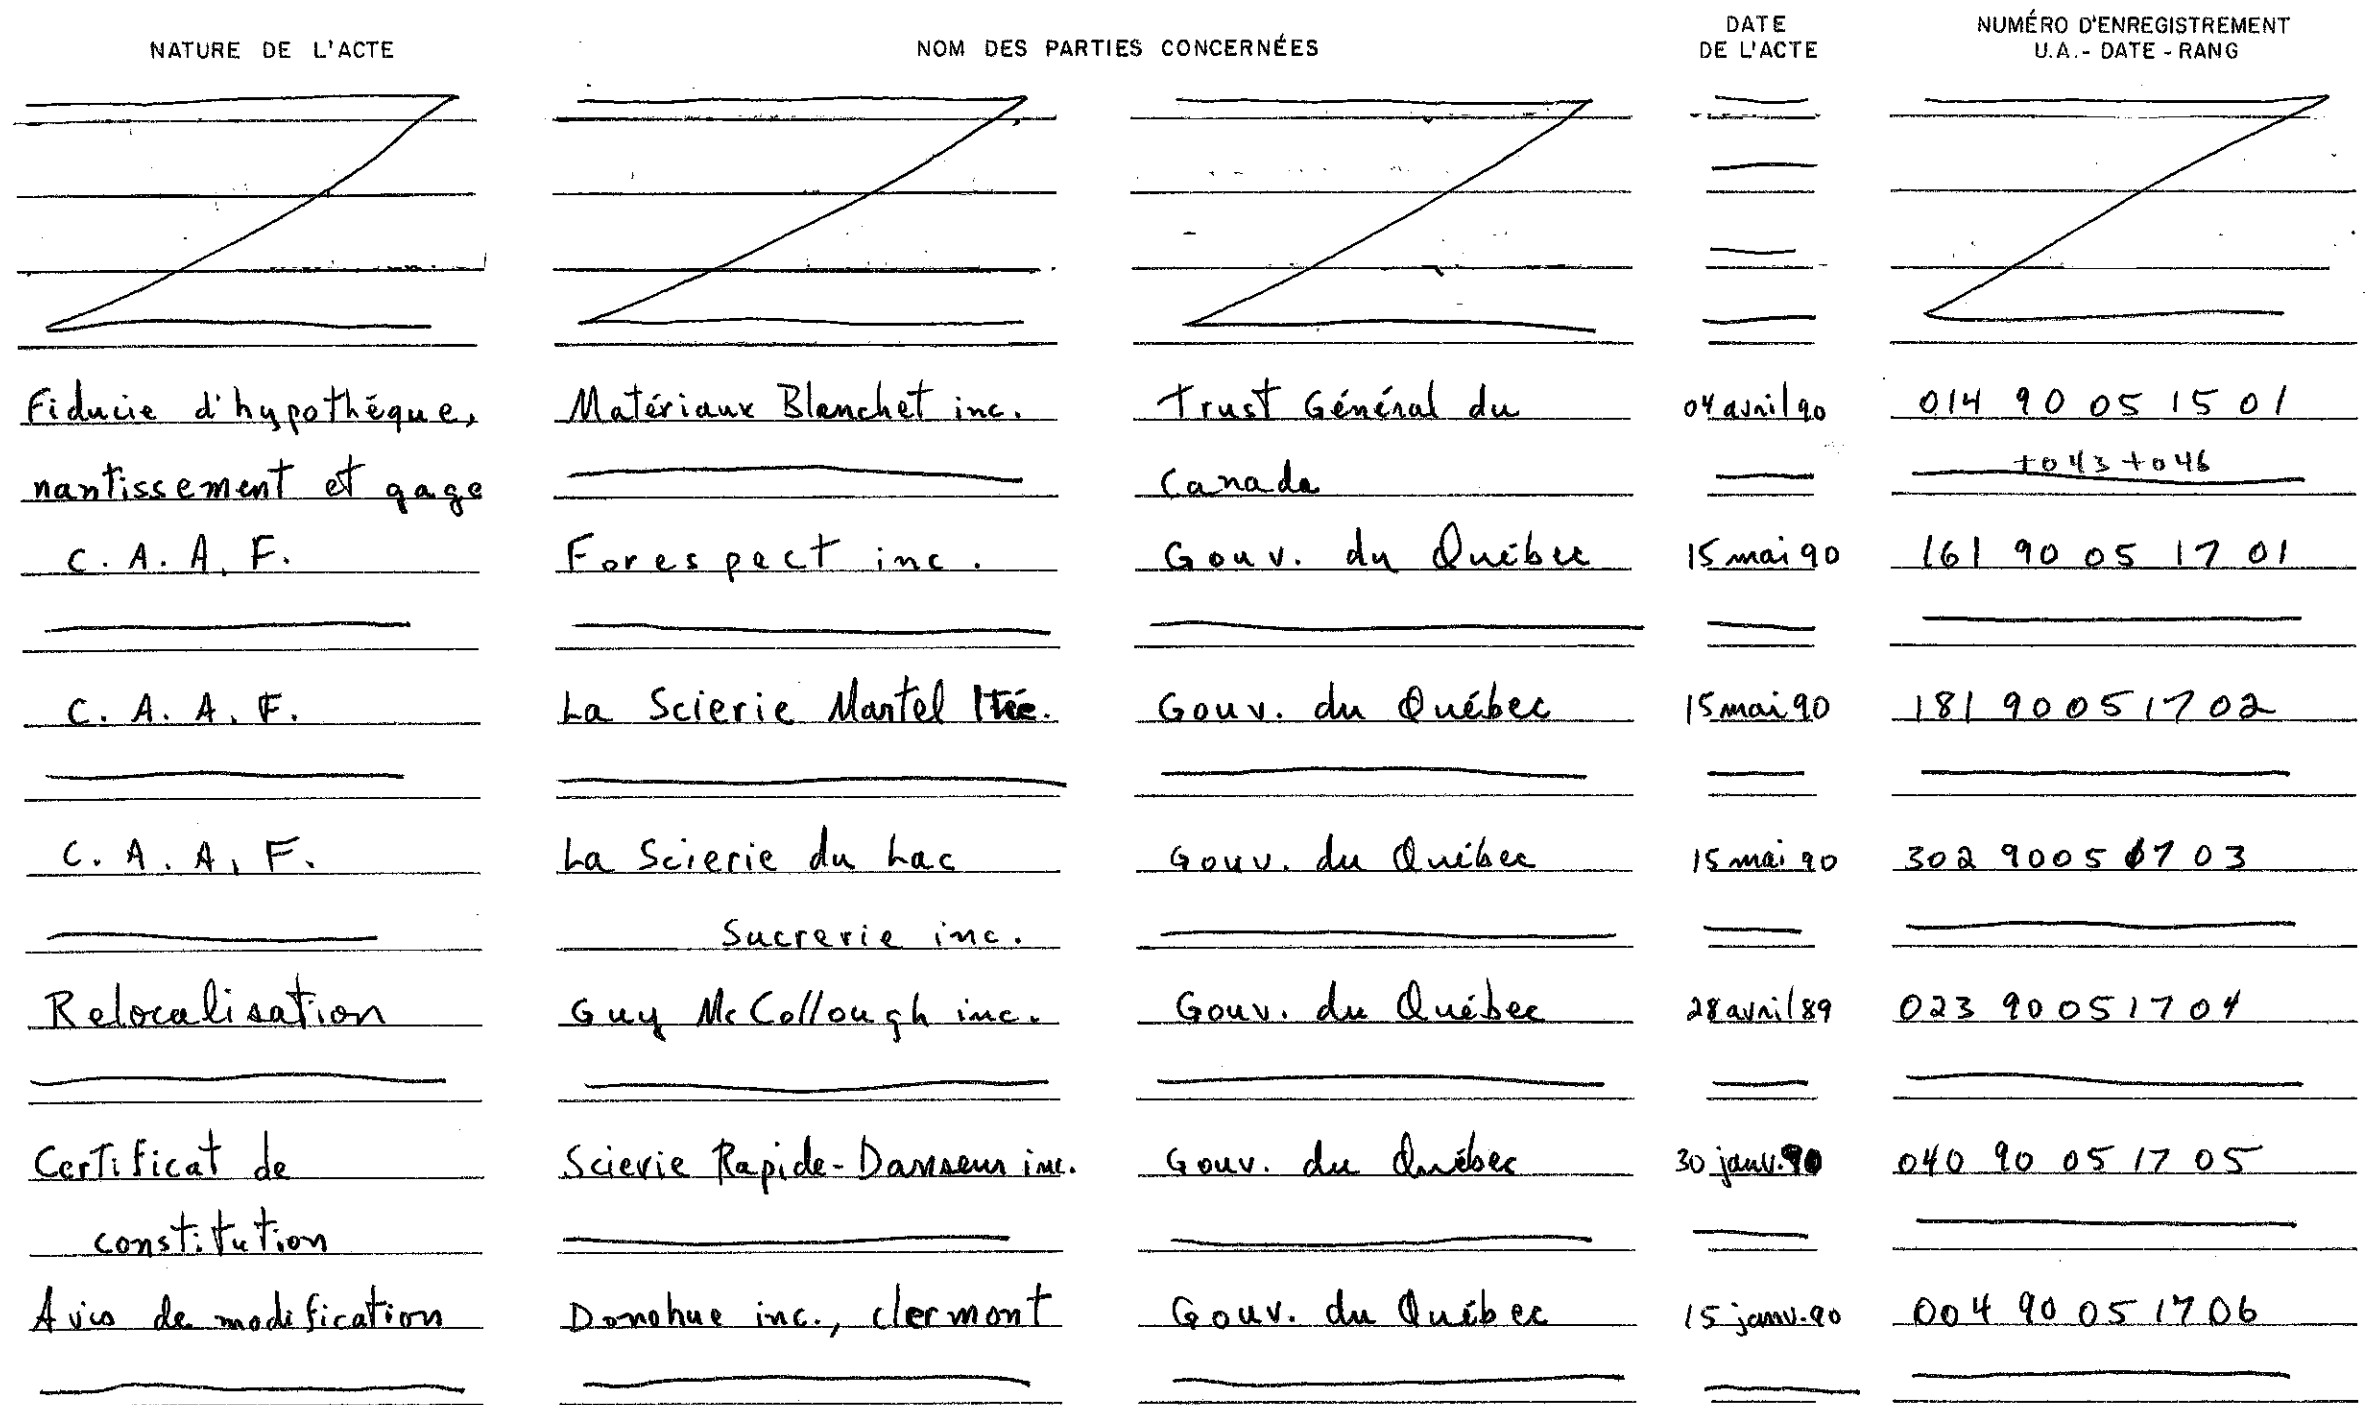 NATURE DE L'ACTE NOM DES PARTIES CONCERNÉES DATE DE L'ACTE NUMÉRO D'ENREGISTREMENT U.A.- DATE - RANG
Fiducie d'hypothéque, Matériaux Blanchet inc. Trust Général du 04 avril 90 014 90 05 15 01
nantissement et gage Canada +043 +046
C. A. A. F. Forespect inc. Gouv. du Québec 15 mai 90 161 90 05 17 01
C. A. A. F. La Scierie Martel ltée. Gouv. du Québec 15 mai 90 181 90 05 17 02
C. A. A. F. La Scierie du Lac Gouv. du Québec 15 mai 90 302 90 05 17 03
Sucrerie inc.
Relocalisation Guy McCollough inc. Gouv. du Québec 28 avril 89 023 90 05 17 04
Certificat de Scierie Rapide-Danseur inc. Gouv. du Québec 30 janv. 90 040 90 05 17 05
constitution
Avis de modification Donohue inc., clermont Gouv. du Québec 15 janv. 90 004 90 05 17 06